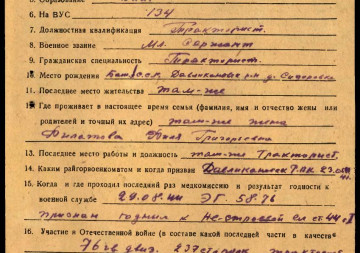 6. На ВУС 134
7. Должностная квалификация Тракторист.
8. Военное звание Мл. Сержант
9. Гражданская специальность Тракторист.
10. Место рождения Баш. АССР Давлекановск р-н д. Сидоровка
11. Последнее место жительства там-же
12. Где проживает в настоящее время семья (фамилия, имя и отчество жены или
родителей и точный их адрес) там-же жена
Филатова Григорьевна
13. Последнее место работы и должность там-же Тракторист.
14. Каким райгорвоенкоматом и когда призван Давлекановск. РВК
15. Когда и где проходил последний раз медкомиссию и результат годности к
военной службе 29.08.44 ЭГ. 58.76
признан годным к Не-строевой
16. Участие в Отечественной войне (в составе какой последней части в качестве
76 гв. двиз. 237 стр. полк